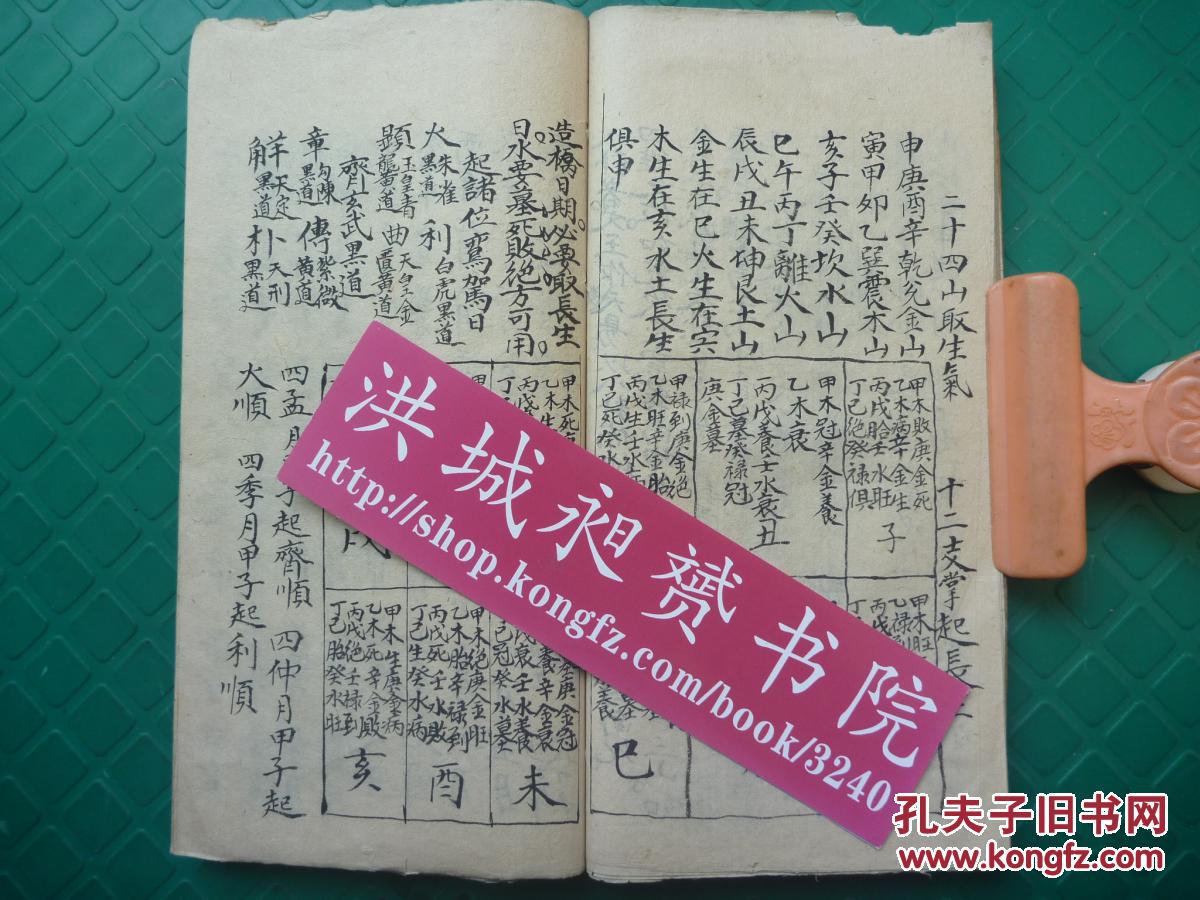 二十四山取生氣
申庚酉辛乾兊金山
寅甲卯乙巽震木山
亥子壬癸坎水山
巳午丙丁離火山
辰戌丑未坤艮土山
金生在巳火生在寅
木生在亥水土長生
俱申
十二支掌起長
甲木敗庚金死
乙木病辛金生
丙戊胎壬水旺
丁己絕癸禄俱
子
甲木冠辛金養
乙木衰
丙戊養壬水衰
丁己墓癸禄冠
庚金墓
丑
甲禄到庚金絕
乙木旺辛金胎
丙戊生壬水
丁己死癸水
甲木旺
乙禄
巳
造橋日期必要取長生
日水要墓死敗絕方可用
起諸位鸞駕日
火 朱雀黑道 利 白虎黑道
顕 玉皇青龍黃道 曲 天皇金匱黃道
齊 玄武黑道
章 勾陳黑道 傳 紫微黃道
觧 天定黑道 朴 天刑黑道
甲木死
乙木生
丙戊
丁己
戌
庚金冠
辛金衰
丙戊衰壬水養
己冠癸水墓
未
甲木絕庚金旺
乙木胎辛禄到
丙戊死壬水敗
丁己生癸水病
酉
甲木生庚金病
乙木死辛金敗
丙戊絕壬禄到
丁己胎癸水旺
亥
四孟月
子起齊順 四仲月甲子起
火順 四季月甲子起利順
洪城昶赟书院
http://shop.kongfz.com/book/3240
孔夫子旧书网
www.kongfz.com